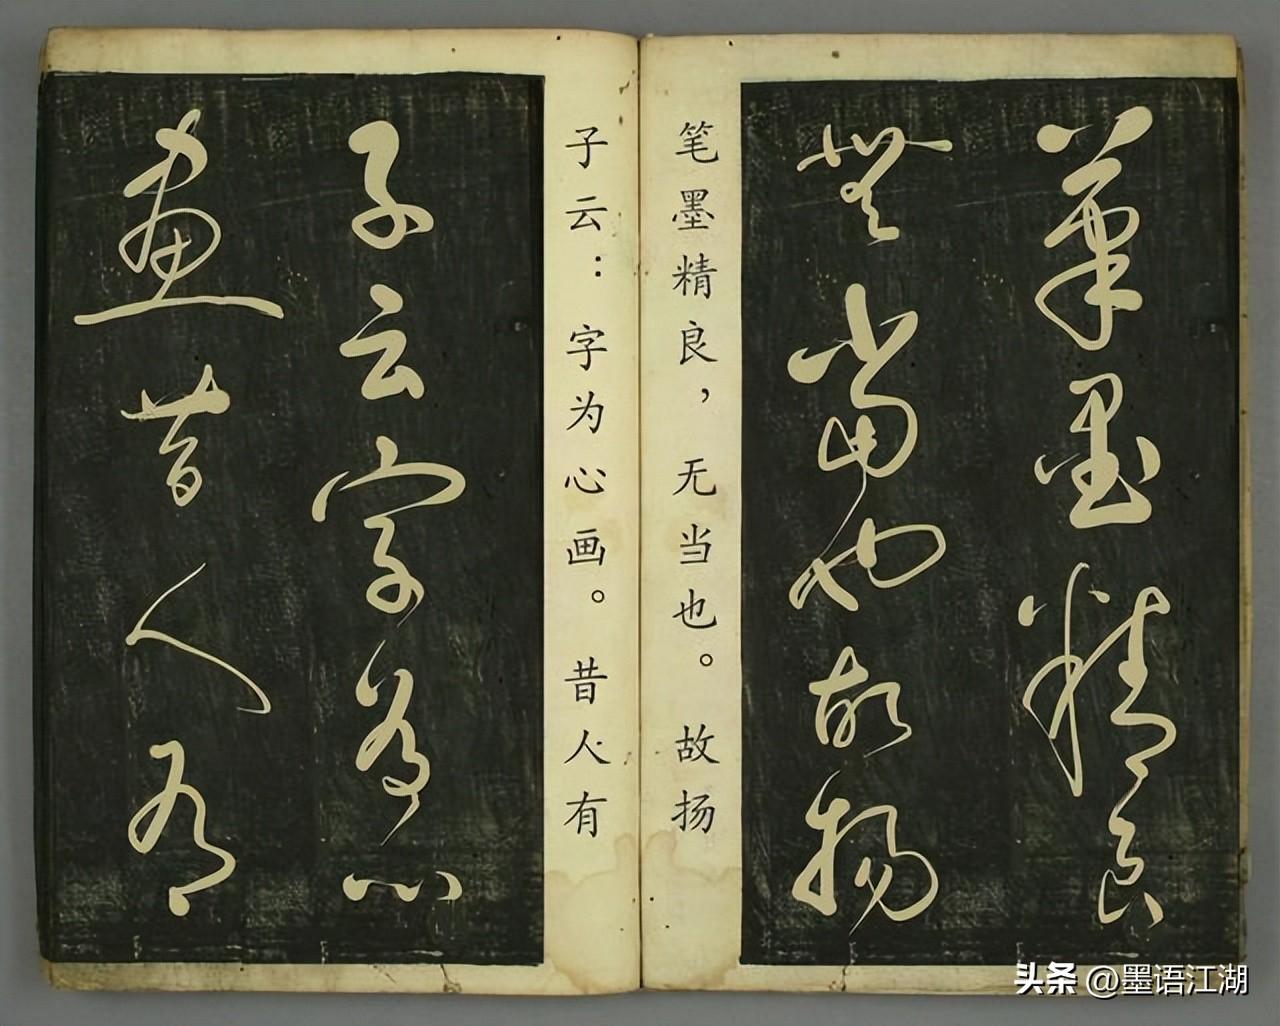 筆墨精良
無當也故揚
笔墨精良，无当也。故扬
子云：字为心画。昔人有
子云字為心
畫昔人有
头条 @墨语江湖